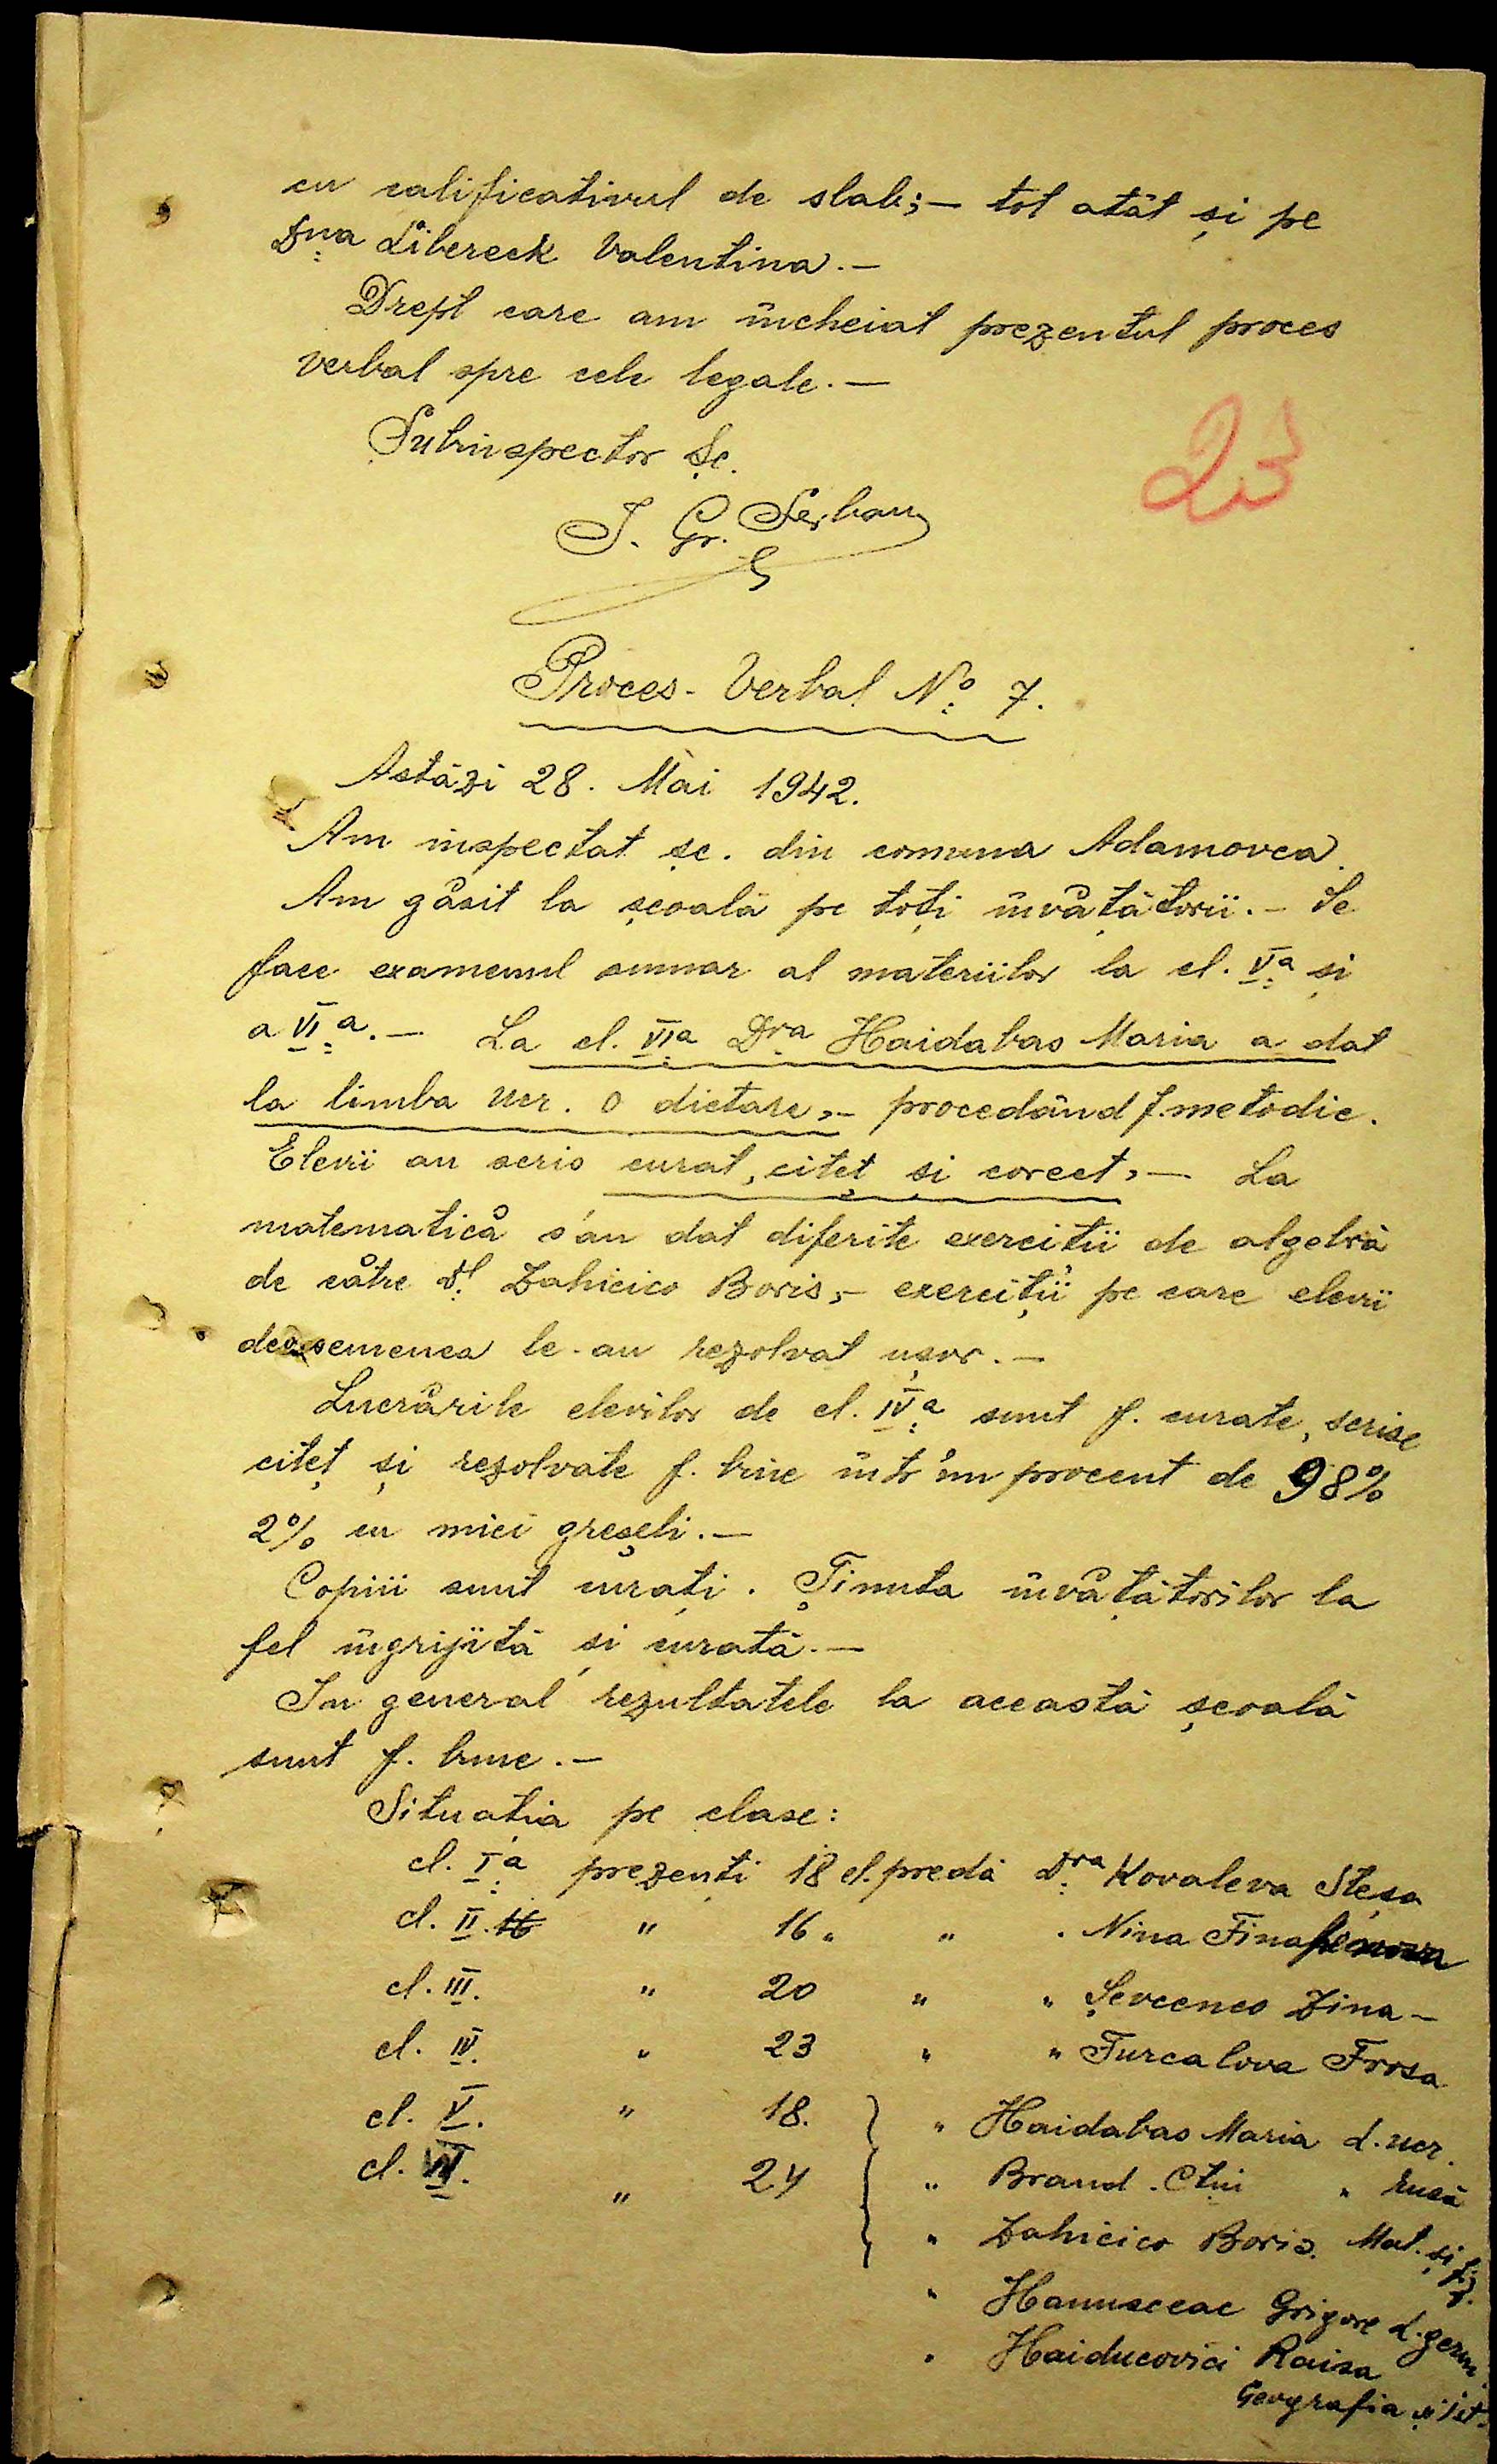 cu calificativul de slab; — tot atât și pe
Dna Libereck Valentina. —
Drept care am încheiat prezentul proces
verbal spre cele legale. —
Subinspector Șc.
I. Gr. Șerban
23
Proces-Verbal No 7.
Astăzi 28. Mai 1942.
Am inspectat șc. din comuna Adamovca.
Am găsit la școală pe toți învățătorii. - Se
face examenul sumar al materiilor la cl. Va și
a VIa. — La cl. VIa Dra Haidabas Maria a dat
la limba ucr. o dictare, - procedând f. metodic.
Elevii au scris curat, citeț și corect, — La
matematică s'au dat diferite exerciții de algebră
de către Dl Zahicico Boris, - exerciții pe care elevii
deasemenea le-au rezolvat ușor. —
Lucrările elevilor de cl. IVa sunt f. curate, scrise
citeț și rezolvate f. bine într'un procent de 98%
2% cu mici greșeli. —
Copiii sunt curați. Ținuta învățătorilor la
fel îngrijită și curată. —
In general rezultatele la această școală
sunt f. bune. —
Situația pe clase:
cl. Ia prezenți 18 el. predă Dra Kovaleva Steșa
cl. II. 16 " 16 " " . Nina
cl. III. " 20 " " Șevcenco Zina -
cl. IV. " 23 " " Turcalova Frosa
cl. V. " 18. } " Haidabas Maria L. ucr.
cl. VI. " 24 " Brand. Ctin " rusă
" Zahicico Boris. Mat. și fiz.
" Hanusceac Grigore L. germ.
" Haiducovici Raisa
Geografia și ist.